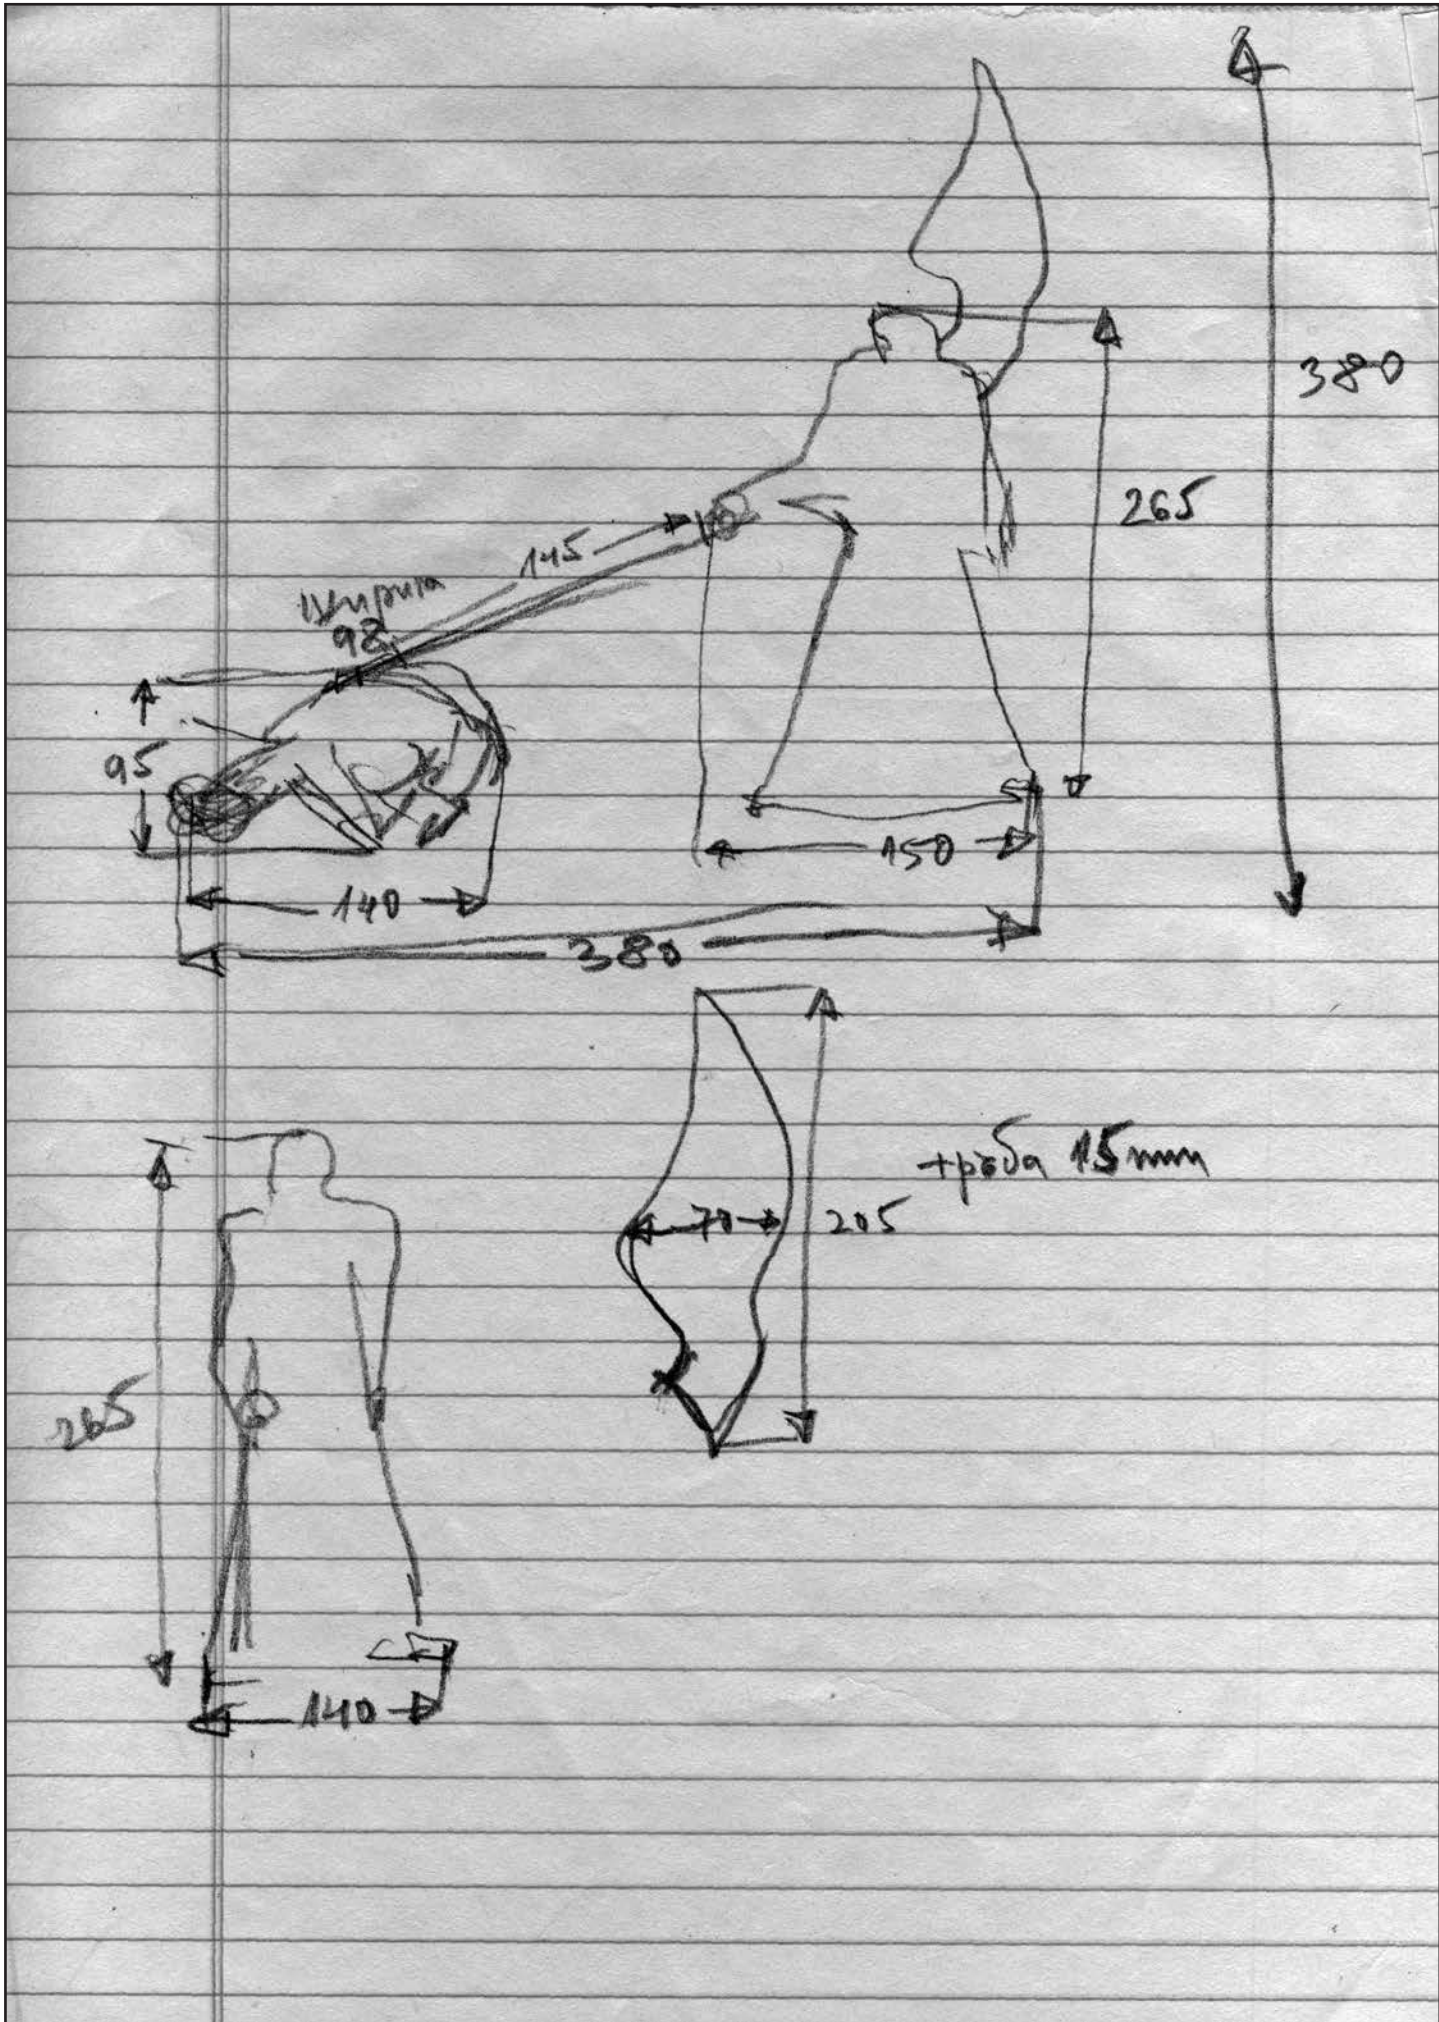 380
265
145
98
95
150
140
380
+ръба 15mm
70
205
265
140